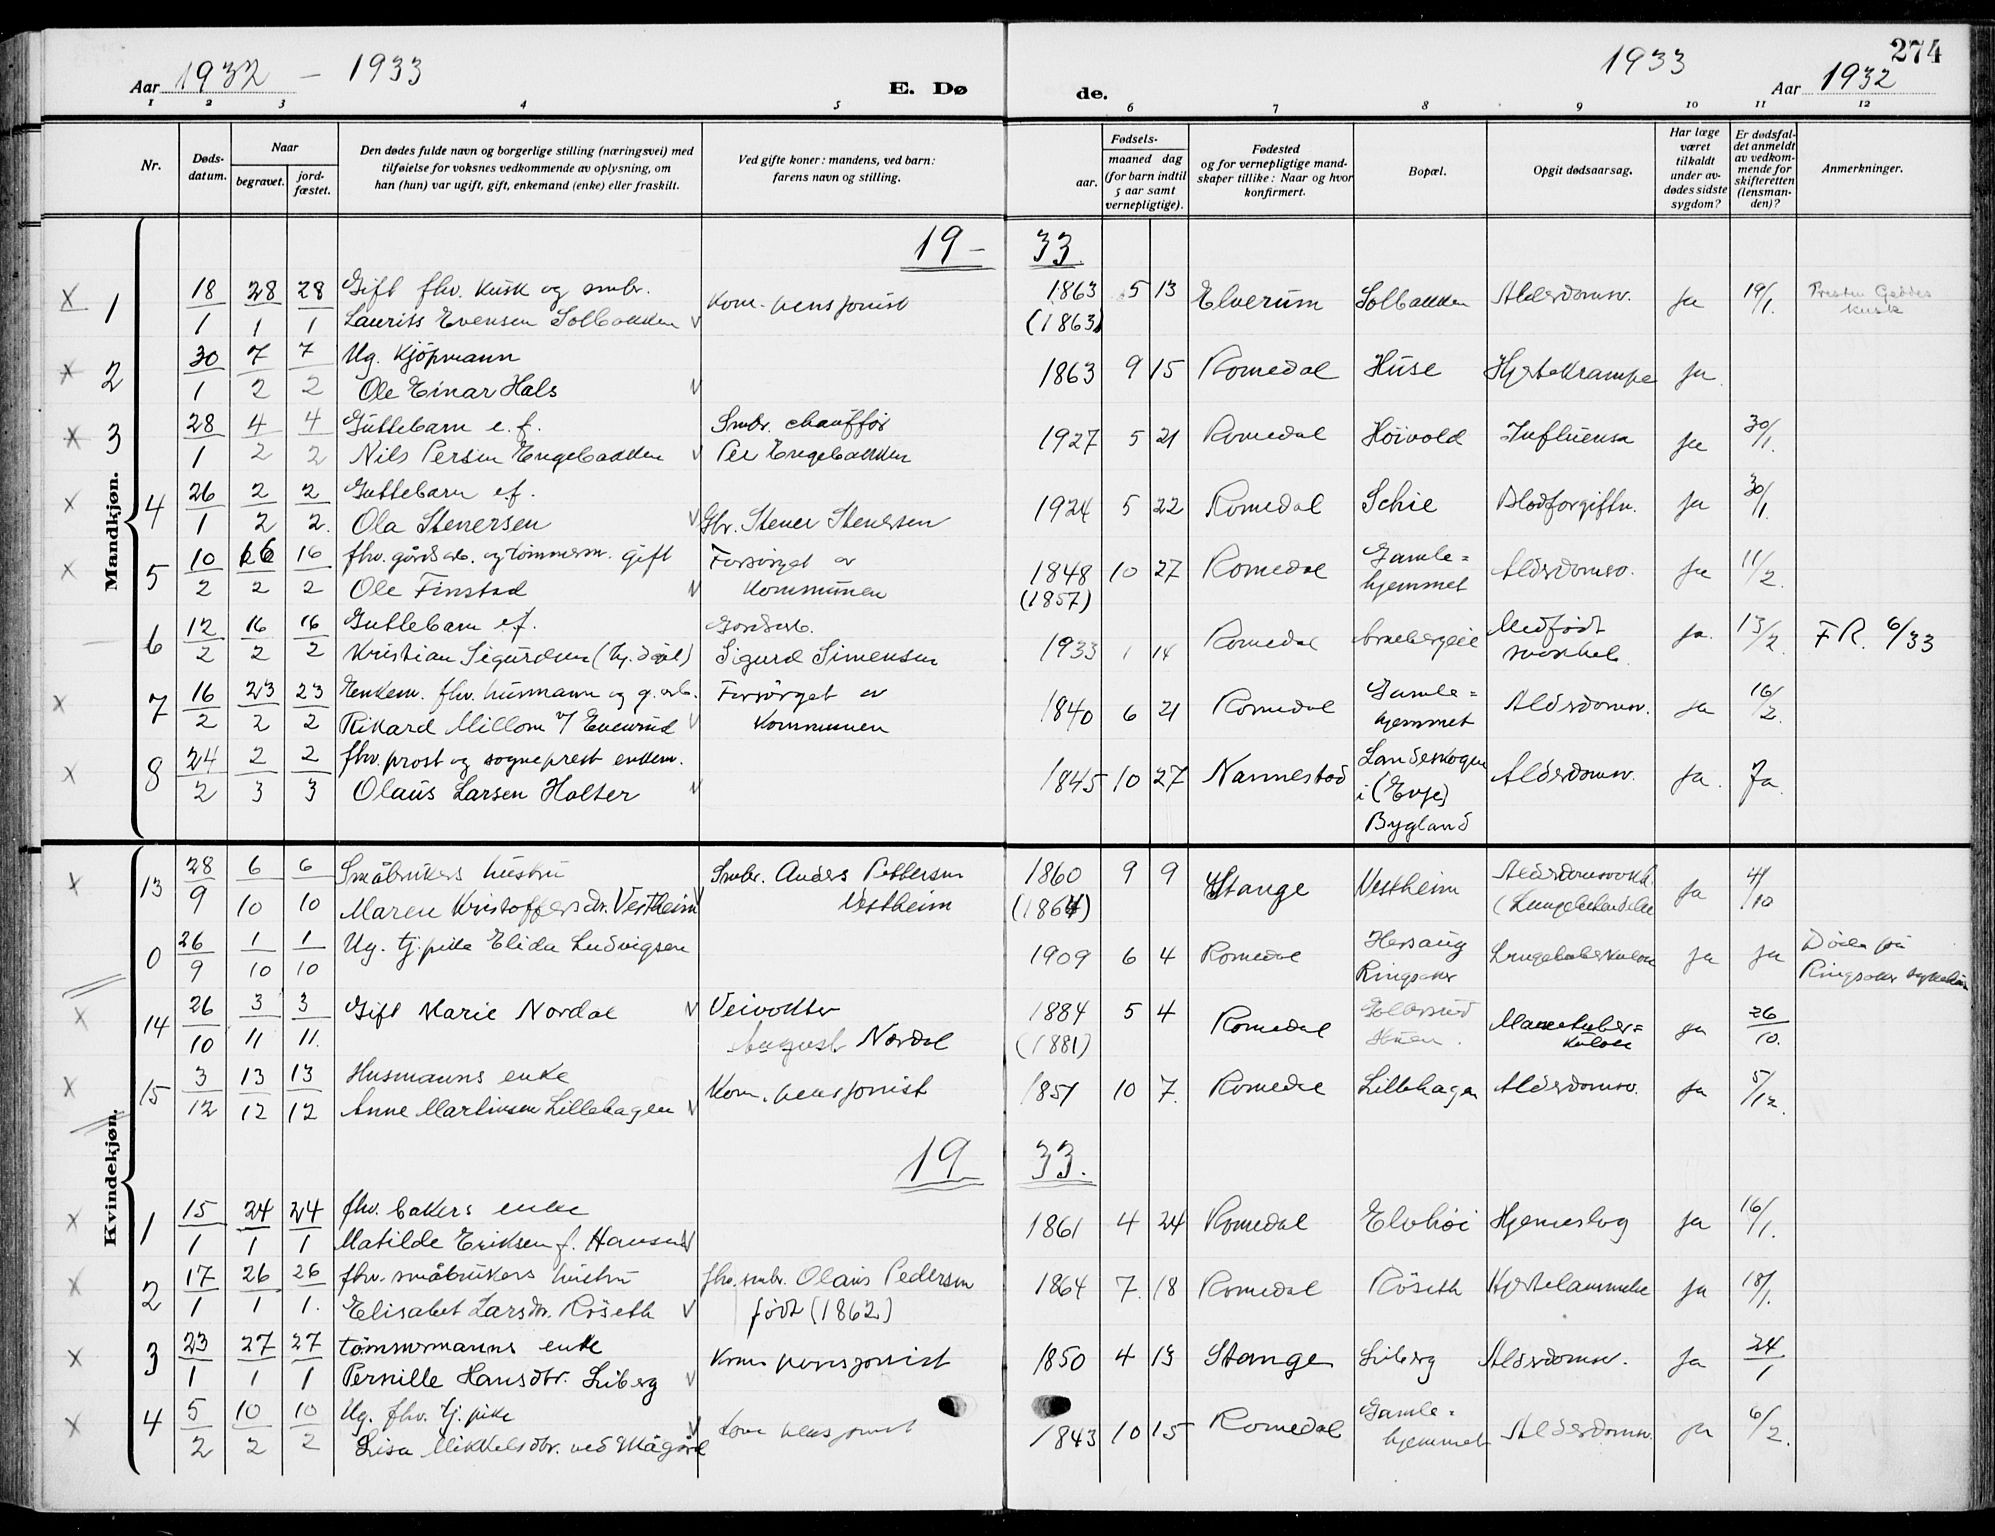 274
Aar 1932 — 1933
E. Dø de.
1933
Aar 1932
1 2 3 4 5 6 7 8 9 10 11 12
Nr.
Døds-
datum.
Naar
begravet.
jord-
fæstet.
Den dødes fulde navn og borgerlige stilling (næringsvei) med
tilføielse for voksnes vedkommende av oplysning, om
han (hun) var ugift, gift, enkemand (enke) eller fraskilt.
Ved gifte koner: mandens, ved barn:
farens navn og stilling.
Fødsels-
aar.
maaned dag
(for barn indtil
5 aar samt
vernepligtige).
Fødested
og for vernepligtige mand-
skaper tillike: Naar og hvor
konfirmert.
Bopæl.
Opgit dødsaarsag.
Har læge
været
tilkaldt
under av-
dødes sidste
sygdom?
Er dødsfal-
det anmeldt
av vedkom-
mende for
skifteretten
(lensman-
den)?
Anmerkninger.
Mandkjøn.
19— 33.
1 18/1 28/1 28/1 Gift fhv. kusk og smbr. Kom. pensjonist 1863 5 13 Elverum Solbakken Alderdomsv. Ja 19/1. Presten Geddes
Laurits Evensen Solbakken (1863) kusk
2 30/1 7/2 7/2 Ug. kjöpmann 1863 9 15 Romedal Huse Hjertekrampe Ja
Ole Einar Hals
3 28/1 4/2 4/2 Guttebarn e.f. Smbr. chauffør 1927 5 21 Romedal Hoivold Influensa Ja 30/1.
Nils Persen Engebakken Per Engebakken
4 26/1 2/2 2/2. Guttebarn e.f. 1924 5 22 Romedal Schie Blodforgiftn. Ja 30/1.
Ola Stenersen Gbr. Stener Stenersen
5 10/2 16/2 16/2 fhv. gårdsarb. og tømmerm. gift Forsörget av 1848 10 27 Romedal Gamle= Alderdomsv. Ja 11/2.
Ole Finstad Kommunen (1857) hjemmet
6 12/2 16/2 16/2 Guttebarn e.f. Gårdsarb. 1933 1 14 Romedal Medfødt Ja 13/2. F R. 6/33
Kristian Sigurdsen (hj. døbt) Sigurd Simensen svakhet.
7 16/2 23/2 23/2 Enkem. fhv. husmann og g. arb. Forsörget av 1840 6 21 Romedal Gamle= Alderdomsv. Ja 16/2.
Rikard Millom v/ Evenrud Kommunen hjemmet
8 24/2 2/3 2/3 fhv. prost og sogneprest enkem. 1845 10 27 Nannestad Landeskogen Alderdomsv. Ja. Ja.
Olaus Larsen Holter i (Evje)
Bygland
Kvindekjøn.
13 28/9 6/10 6/10 Småbrukers hustru Smbr. Anders Pettersen 1860 9 9 Stange Vestheim Ja 4/10
Maren Kristoffersdr. Vestheim Vestheim (1864)
0 26/9 1/10 1/10 Ug. tj. pike Elida Ludvigsen 1909 6 4 Romedal Hersaug Lungetuberkulose Ja Ja Döde på
Ringsaker Ringsaker sykehus
14 26/10 3/11 3/11. Gift Marie Nordal Veivokter 1884 5 4 Romedal Mavetuber= Ja 26/10.
August Nordal (1881) kulose
15 3/12 13/12 13/12 Husmanns enke Kom. pensjonist 1851 10 7. Romedal Lillehagen Alderdomsv. Ja 5/12.
Anne Martinsen Lillehagen
19 33.
1 15/1 24/1 24/1 fhv. bakers enke 1861 4 24 Romedal Elvhöi Hjerneslag Ja 16/1.
Matilde Eriksen f. Hansen
2 17/1 26/1 26/1. fhv. småbrukers hustru fhv. smbr. Olaus Pedersen 1864 7. 18 Romedal Röseth Hjertelammelse Ja 18/1.
Elisabet Larsdtr. Röseth født (1862)
3 23/1 27/1 27/1 tömmermanns enke Kom. pensjonist 1850 4 13 Stange Liberg Alderdomsv. Ja 24/1
Pernille Hansdtr. Liberg
4 5/2 10/2 10/2 Ug. fhv. tj. pike Kom pensjonist 1843 10 15 Romedal Gamle= Alderdomsv. Ja 6/2.
Lisa Mikkelsdtr. ved Mågård hjemmet